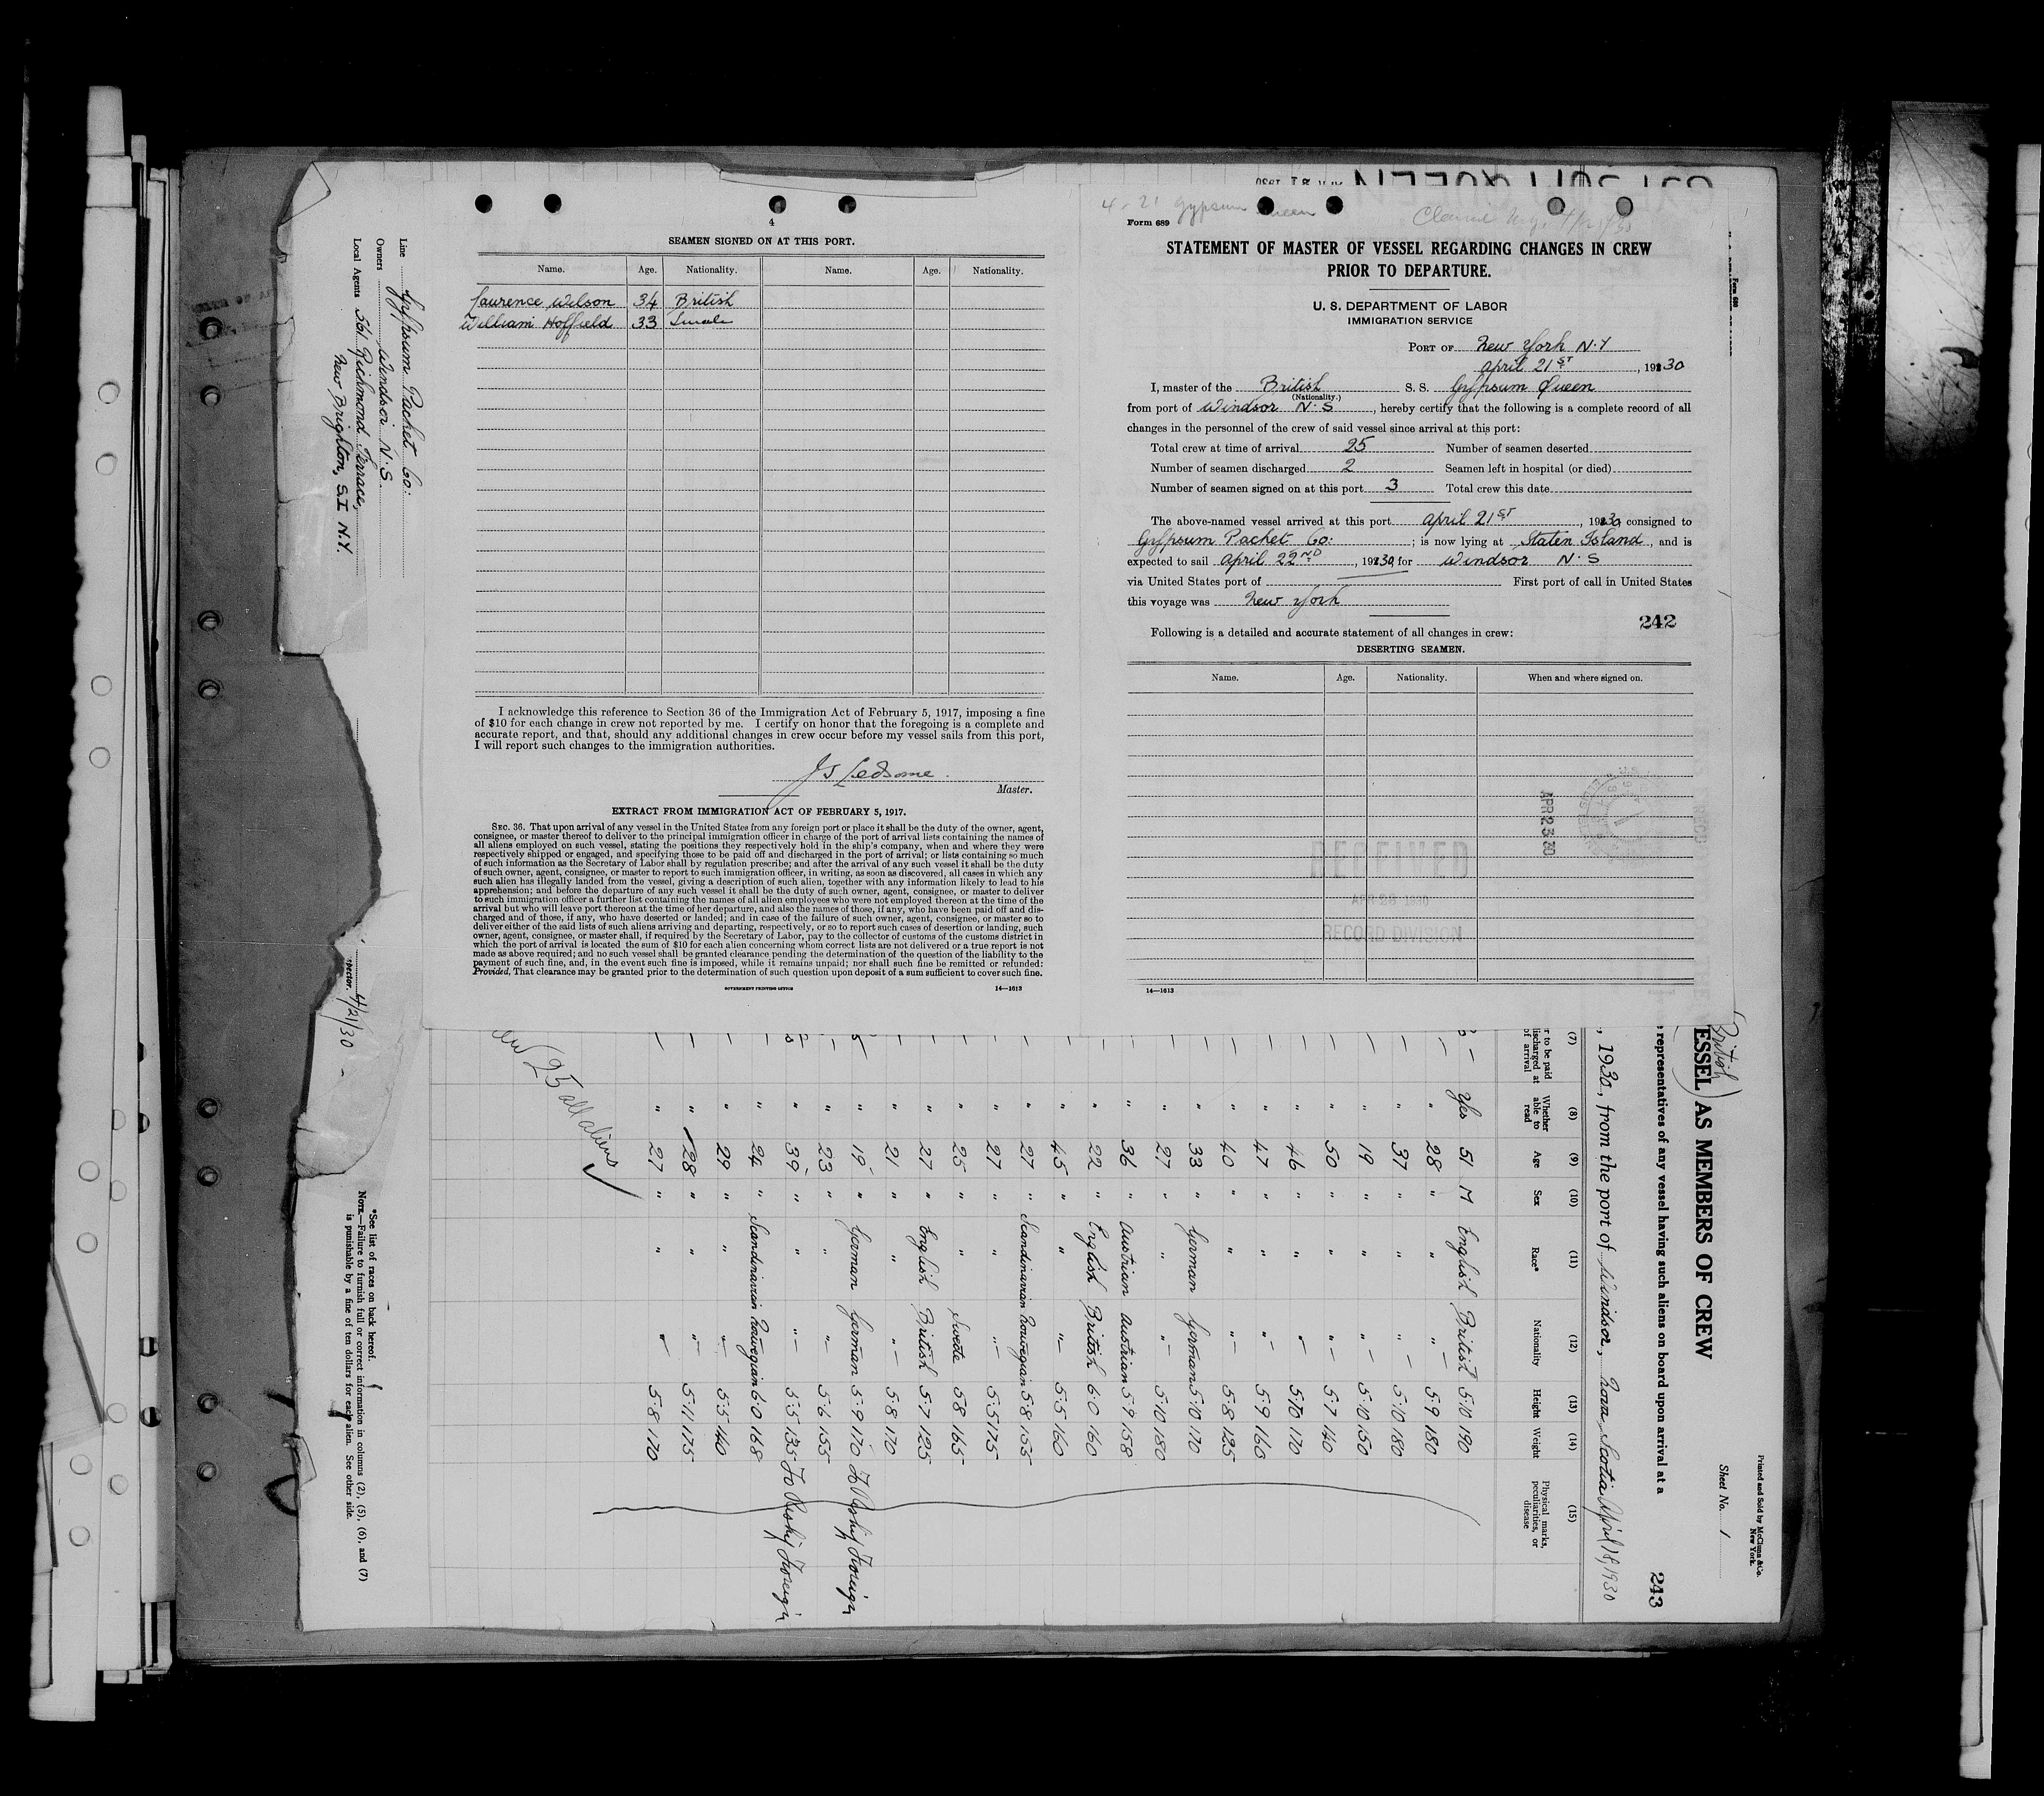 4
SEAMEN SIGNED ON AT THIS PORT.
Name. Age. Nationality. Name. Age. Nationality.
Laurence Wilson 34 British
William Hoffield 33
I acknowledge this reference to Section 36 of the Immigration Act of February 5, 1917, imposing a fine
of $10 for each change in crew not reported by me. I certify on honor that the foregoing is a complete and
accurate report, and that, should any additional changes in crew occur before my vessel sails from this port,
I will report such changes to the immigration authorities.
Master.
EXTRACT FROM IMMIGRATION ACT OF FEBRUARY 5, 1917.
SEC. 36. That upon arrival of any vessel in the United States from any foreign port or place it shall be the duty of the owner, agent,
consignee, or master thereof to deliver to the principal immigration officer in charge of the port of arrival lists containing the names of
all aliens employed on such vessel, stating the positions they respectively hold in the ship's company, when and where they were
respectively shipped or engaged, and specifying those to be paid off and discharged in the port of arrival; or lists containing so much
of such information as the Secretary of Labor shall by regulation prescribe; and after the arrival of any such vessel it shall be the duty
of such owner, agent, consignee, or master to report to such immigration officer, in writing, as soon as discovered, all cases in which any
such alien has illegally landed from the vessel, giving a description of such alien, together with any information likely to lead to his
apprehension; and before the departure of any such vessel it shall be the duty of such owner, agent, consignee, or master to deliver
to such immigration officer a further list containing the names of all alien employees who were not employed thereon at the time of the
arrival but who will leave port thereon at the time of her departure, and also the names of those, if any, who have been paid off and dis-
charged and of those, if any, who have deserted or landed; and in case of the failure of such owner, agent, consignee, or master so to
deliver either of the said lists of such aliens arriving and departing, respectively, or so to report such cases of desertion or landing, such
owner, agent, consignee, or master shall, if required by the Secretary of Labor, pay to the collector of customs of the customs district in
which the port of arrival is located the sum of $10 for each alien concerning whom correct lists are not delivered or a true report is not
made as above required; and no such vessel shall be granted clearance pending the determination of the question of the liability to the
payment of such fine, and, in the event such fine is imposed, while it remains unpaid; nor shall such fine be remitted or refunded:
Provided, That clearance may be granted prior to the determination of such question upon deposit of a sum sufficient to cover such fine.
GOVERNMENT PRINTING OFFICE 14—1613
4-21 Gypsum Queen
Form 689
STATEMENT OF MASTER OF VESSEL REGARDING CHANGES IN CREW
PRIOR TO DEPARTURE.
U. S. DEPARTMENT OF LABOR
IMMIGRATION SERVICE
PORT OF New York N.Y
April 21ST, 1930
I, master of the British S. S. Gypsum Queen
(Nationality.)
from port of Windsor N.S, hereby certify that the following is a complete record of all
changes in the personnel of the crew of said vessel since arrival at this port:
Total crew at time of arrival 25 Number of seamen deserted
Number of seamen discharged 2 Seamen left in hospital (or died)
Number of seamen signed on at this port 3 Total crew this date
The above-named vessel arrived at this port April 21ST, 1930, consigned to
Gypsum Packet Co: ; is now lying at Staten Island, and is
expected to sail April 22ND, 1930, for Windsor N.S
via United States port of First port of call in United States
this voyage was New York
242
Following is a detailed and accurate statement of all changes in crew:
DESERTING SEAMEN.
Name. Age. Nationality. When and where signed on.
APR 23 30
RECEIVED
APR 26 1930
RECORD DIVISION
14—1613
Line Gypsum Packet Co:
Owners Windsor N.S.
Local Agents 561 Richmond Terrace,
New Brighton, S.I N.Y.
4/21/30
Printed and Sold by McClunn & Co.
New York.
Sheet No. 1
(British)
ESSEL AS MEMBERS OF CREW
representatives of any vessel having such aliens on board upon arrival at a
243
, 1930, from the port of Windsor, Nova Scotia April 18, 1930
(7) (8) (9) (10) (11) (12) (13) (14) (15)
Whether able to read Age Sex Race* Nationality Height Weight Physical marks, peculiarities, or disease
— Yes 51 M English British 5.10 190
— " 28 " " " 5.9 180
— " 37 " " " 5.10 180
— " 19 " " " 5.10 150
— " 50 " " " 5.7 140
— " 46 " " " 5.10 170
— " 47 " " " 5.9 165
— " 40 " " " 5.8 125
— " 33 " German German 5.10 170
— " 27 " " " 5.10 180
— " 36 " Austrian Austrian 5.9 158
— " 22 " English British 6.0 160
— " 45 " " " 5.5 160
— " 27 " Scandinavian Norwegian 5.8 155
— " 27 " " " 5.5 175
— " 25 " " 5.8 165
— " 27 " English British 5.7 125
— " 21 " " " 5.8 170
" 19 " German German 5.9 170 To Reship Foreign
— " 23 " " " 5.6 155
" 39 " " " 5.5 135 To Reship Foreign
— " 24 " Scandinavian Norwegian 6.0 168
— " 29 " " " 5.5 140
— " 28 " " " 5.11 175
— " 27 " " " 5.8 170
25 all aliens
*See list of races on back hereof.
NOTE.—Failure to furnish full or correct information in columns (2), (5), (6), and (7)
is punishable by a fine of ten dollars for each alien. See other side.